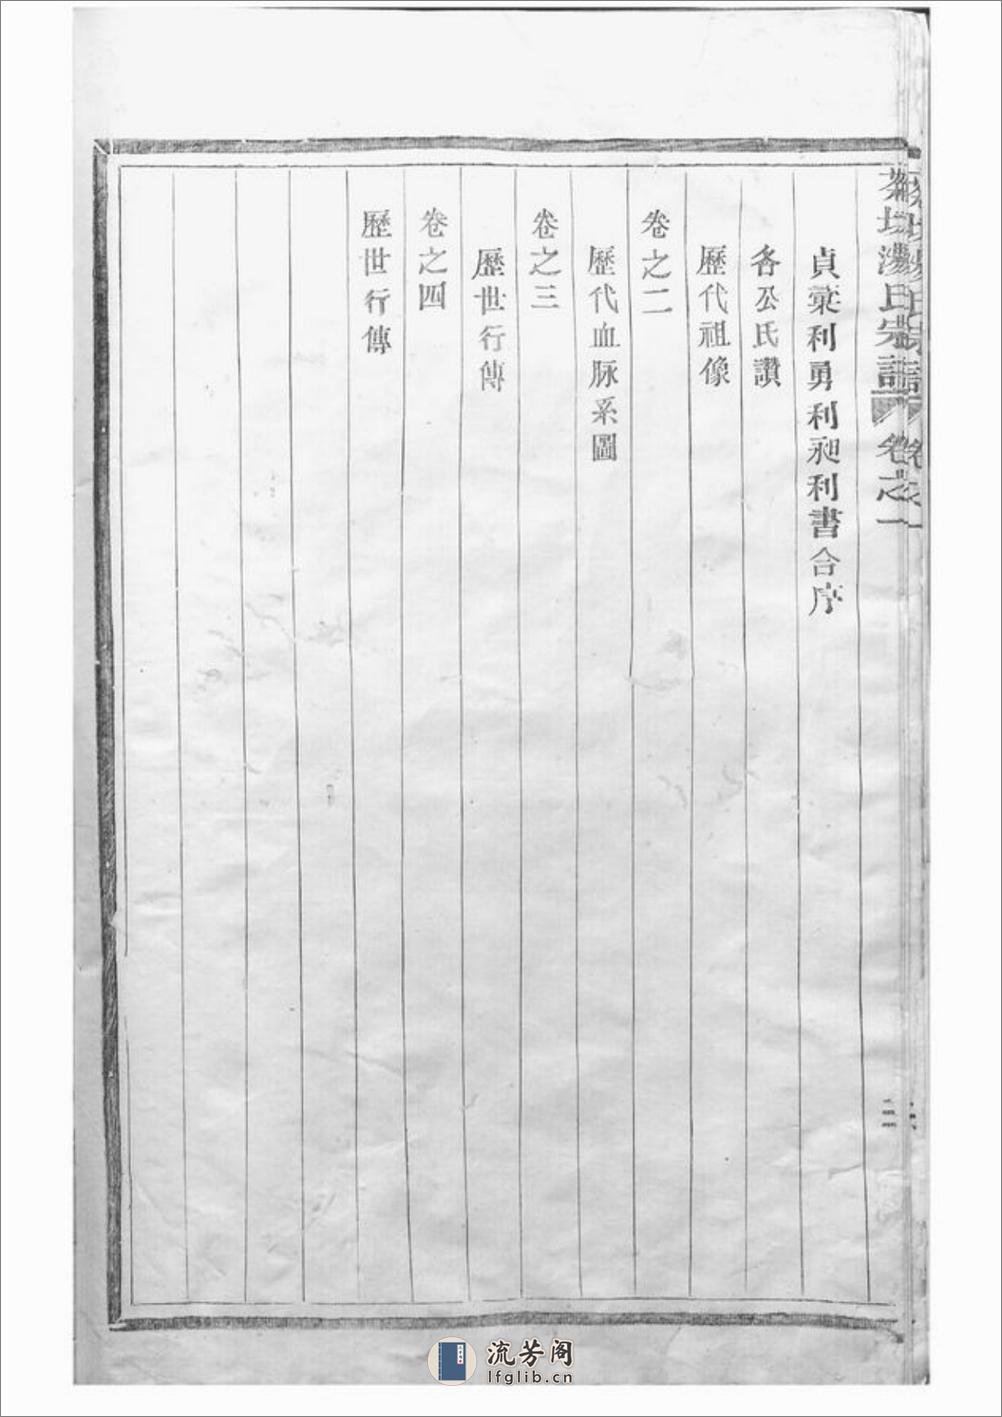 貞彙利勇利昶利書合序
各公氏讚
歷代祖像
卷之二
歷代血脉系圖
卷之三
歷世行傳
卷之四
歷世行傳
氏宗譜
卷之一
流芳阁
lfglib.cn